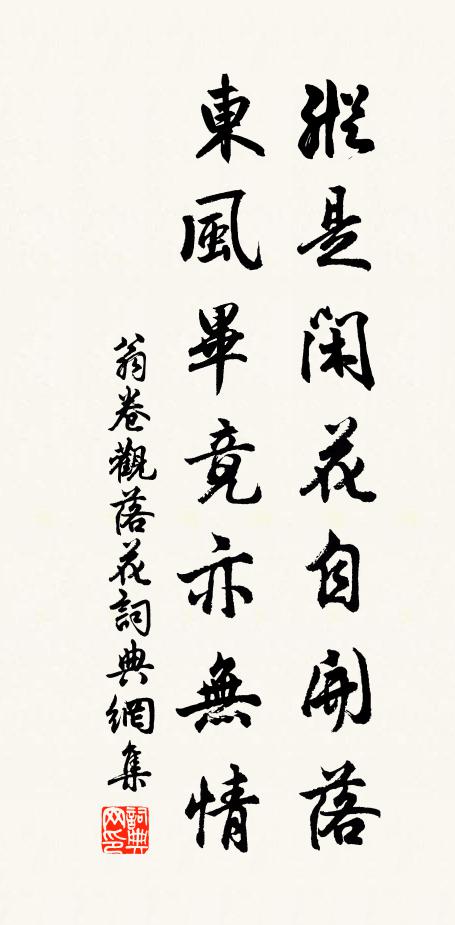 縱是閑花自開落
東風畢竟亦無情
翁卷觀落花詞典網集
詞典网印